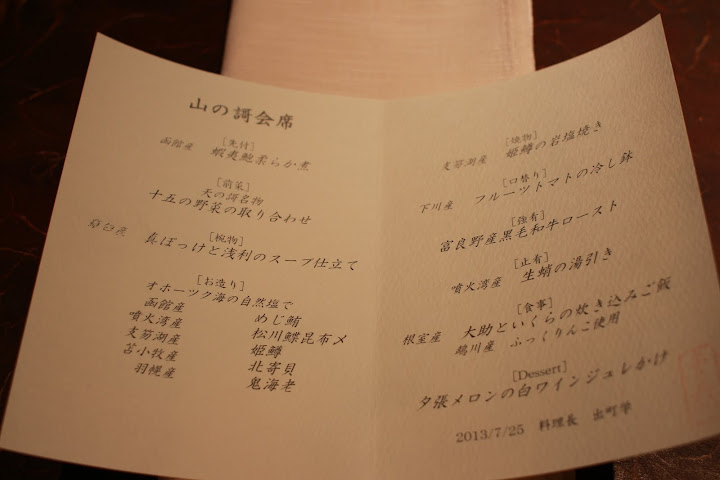 山の謌会席
[先付]
函館産 蝦夷鮑柔らか煮
[前菜]
天の謌名物
十五の野菜の取り合わせ
[椀物]
真ほっけと浅利のスープ仕立て
[お造り]
オホーツク海の自然塩で
函館産 めじ鮪
噴火湾産 松川鰈昆布〆
支笏湖産 姫鱒
苫小牧産 北寄貝
羽幌産 鬼海老
[焼物]
支笏湖産 姫鱒の岩塩焼き
[口替り]
下川産 フルーツトマトの冷し鉢
[強肴]
富良野産黒毛和牛ロースト
[止肴]
噴火湾産 生蛸の湯引き
[食事]
根室産 大助といくらの炊き込みご飯
鵡川産 ふっくりんこ使用
[Dessert]
夕張メロンの白ワインジュレかけ
2013/7/25 料理長 出町学